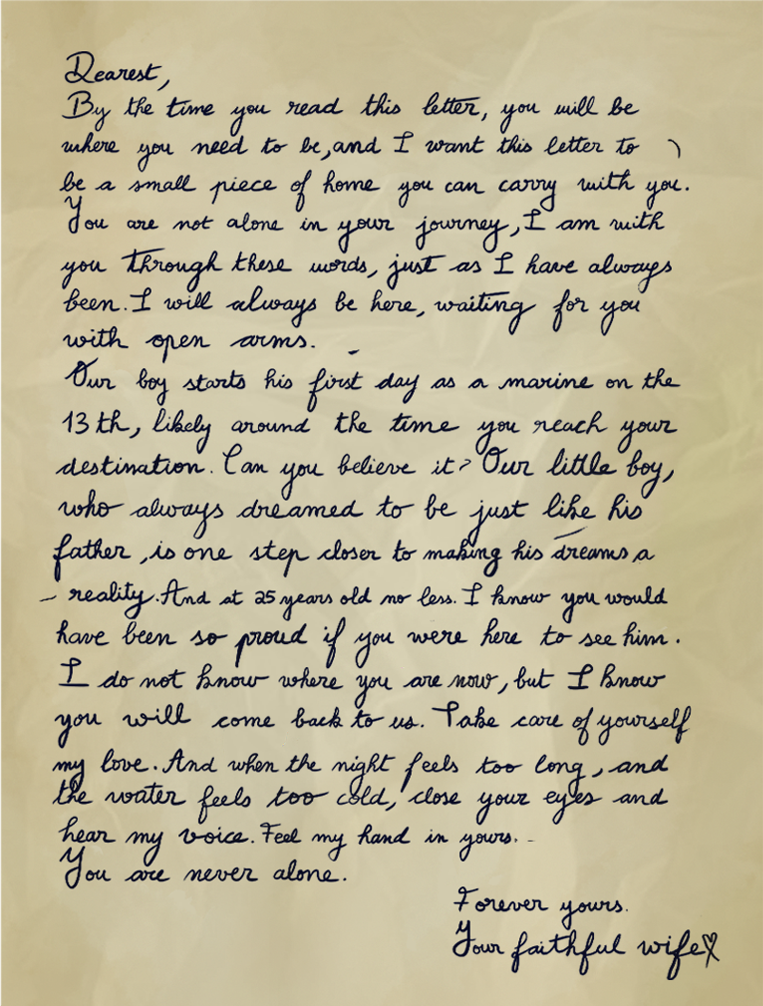 Dearest,
By the time you read this letter, you will be
where you need to be, and I want this letter to
be a small piece of home you can carry with you.
You are not alone in your journey, I am with
you through these words, just as I have always
been. I will always be here, waiting for you
with open arms.
Our boy starts his first day as a marine on the
13th, likely around the time you reach your
destination. Can you believe it? Our little boy,
who always dreamed to be just like his
father, is one step closer to making his dreams a
reality. And at 25 years old no less. I know you would
have been so proud if you were here to see him.
I do not know where you are now, but I know
you will come back to us. Take care of yourself
my love. And when the night feels too long, and
the water feels too cold, close your eyes and
hear my voice. Feel my hand in yours.
You are never alone.
Forever yours.
Your faithful wife